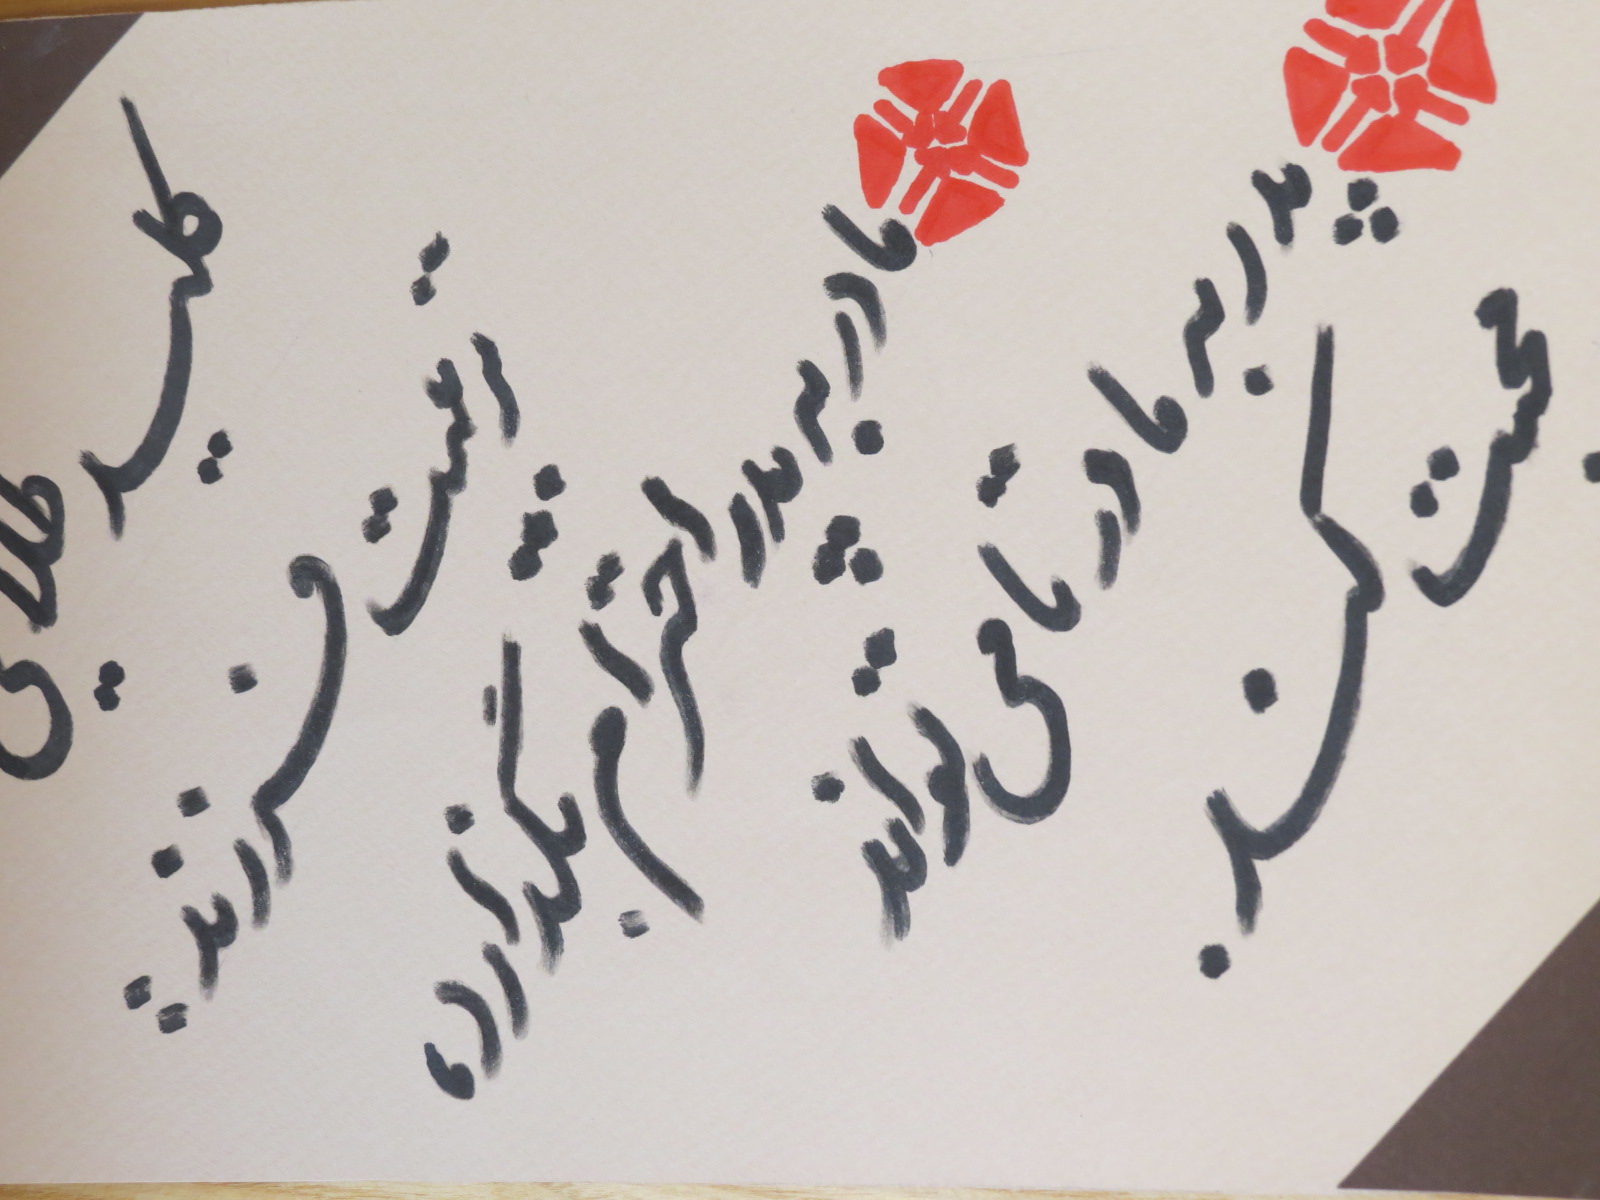 کلید طلایی
تربیت فرزند :
مادر به پدر احترام بگذارد و
پدر به مادر تا می تواند
محبت کند .